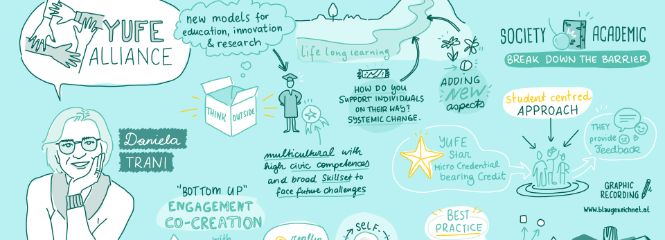 YUFE
ALLIANCE
new models for
education, innovation
& research
life long learning
THINK
OUTSIDE
HOW DO YOU
SUPPORT INDIVIDUALS
ON THEIR WAY?
SYSTEMIC CHANGE.
ADDING
NEW
aspects
SOCIETY
ACADEMIC
BREAK DOWN THE BARRIER
student centred
APPROACH
THEY
provide
Feedback
Daniela
TRANI
multicultural with
high civic competences
and broad skillset to
face future challenges
YUFE
Star
Micro Credential
bearing Credit
GRAPHIC
RECORDING
www.blaugezeichnet.at
"BOTTOM UP"
ENGAGEMENT
CO-CREATION
with
SELF-
BEST
PRACTICE